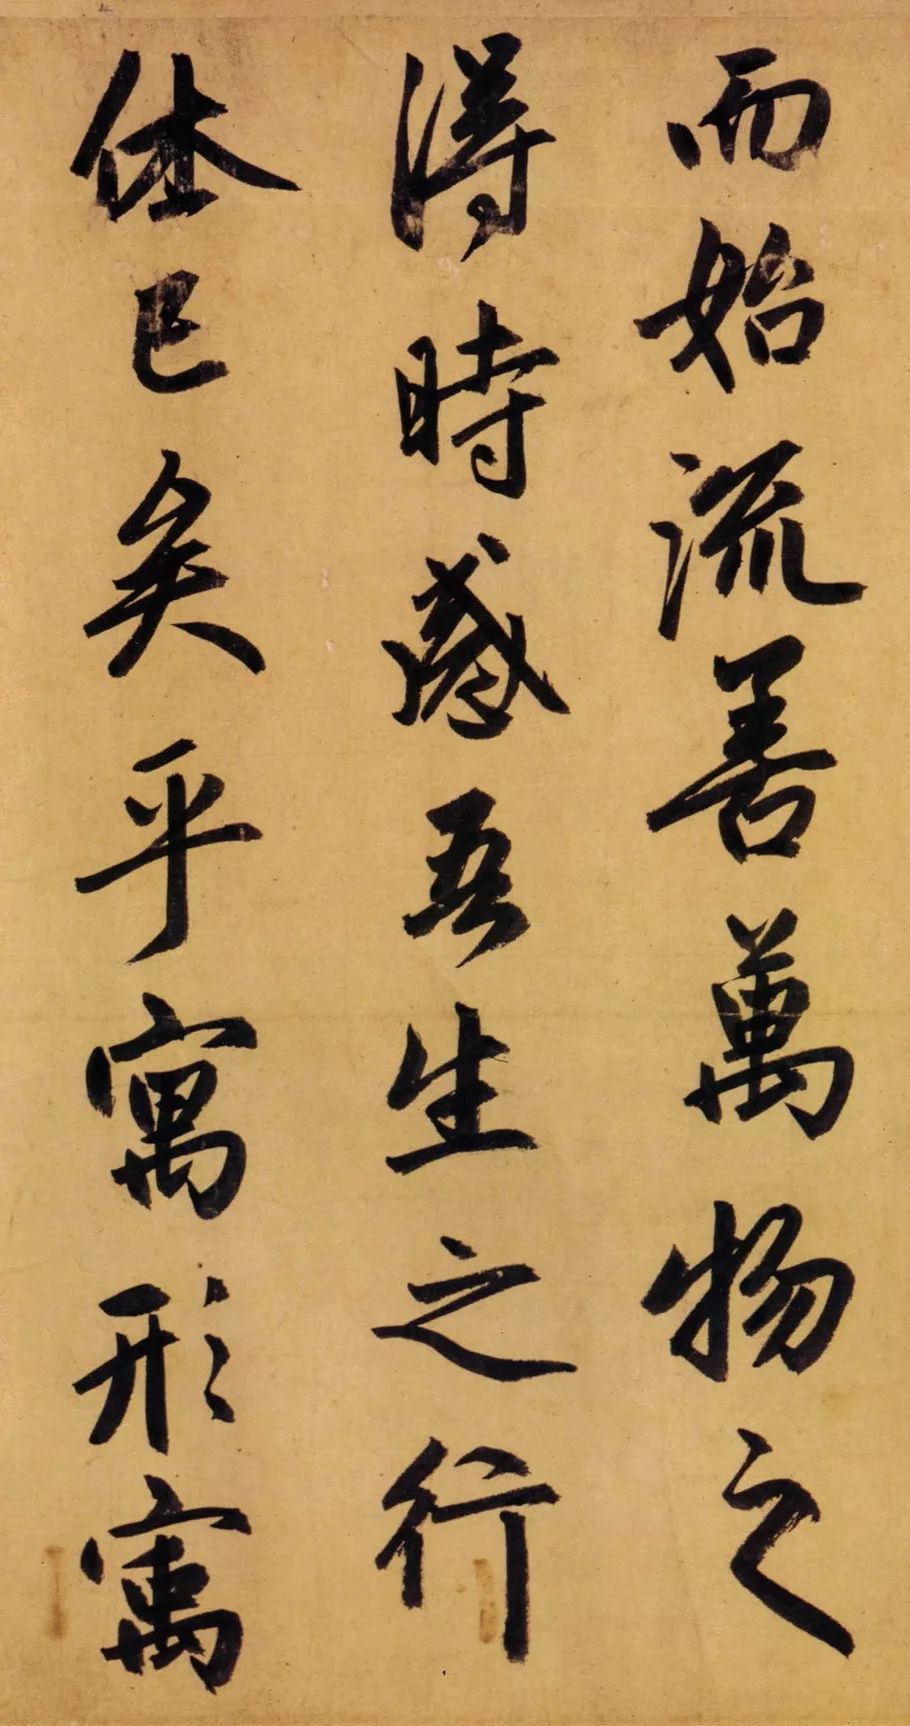 而始流善萬物之
得時感吾生之行
休已矣乎寓形㝢